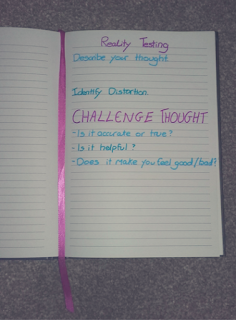 Reality Testing
Describe your thought
Identify Distortion
CHALLENGE THOUGHT
- Is it accurate or true?
- Is it helpful?
- Does it make you feel good/bad?